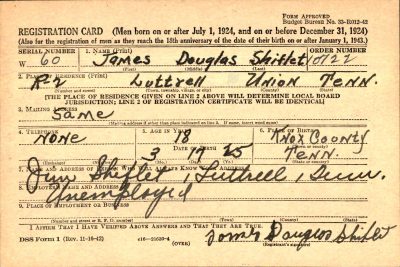 FORM APPROVED
Budget Bureau No. 33-R012-42
REGISTRATION CARD (Men born on or after July 1, 1924, and on or before December 31, 1924)
(Also for the registration of men as they reach the 18th anniversary of the date of their birth on or after January 1, 1943.)
SERIAL NUMBER 1. NAME (Print) ORDER NUMBER
W 60 James Douglas Shiflet 10722
2. PLACE OF RESIDENCE (Print)
R-2 Luttrell Union Tenn.
[THE PLACE OF RESIDENCE GIVEN ON LINE 2 ABOVE WILL DETERMINE LOCAL BOARD
JURISDICTION; LINE 2 OF REGISTRATION CERTIFICATE WILL BE IDENTICAL]
3. MAILING ADDRESS
Same
[Mailing address if other than place indicated on line 2. If same, insert word same]
4. TELEPHONE 5. AGE IN YEARS 6. PLACE OF BIRTH
None 18 Knox County
DATE OF BIRTH
3 25 Tenn.
(Exchange) (Number) (Mo.) (Day) (Yr.) (State or country)
7. NAME AND ADDRESS OF PERSON WHO WILL ALWAYS KNOW YOUR ADDRESS
Shiflet, Luttrell, Tenn.
8. EMPLOYER'S NAME AND ADDRESS
Unemployed
9. PLACE OF EMPLOYMENT OR BUSINESS
(Number and street or R. F. D. number) (Town) (County) (State)
I AFFIRM THAT I HAVE VERIFIED ABOVE ANSWERS AND THAT THEY ARE TRUE.
DSS Form 1 (Rev. 11-16-42) (OVER) James Douglas Shiflet
(Registrant's signature)